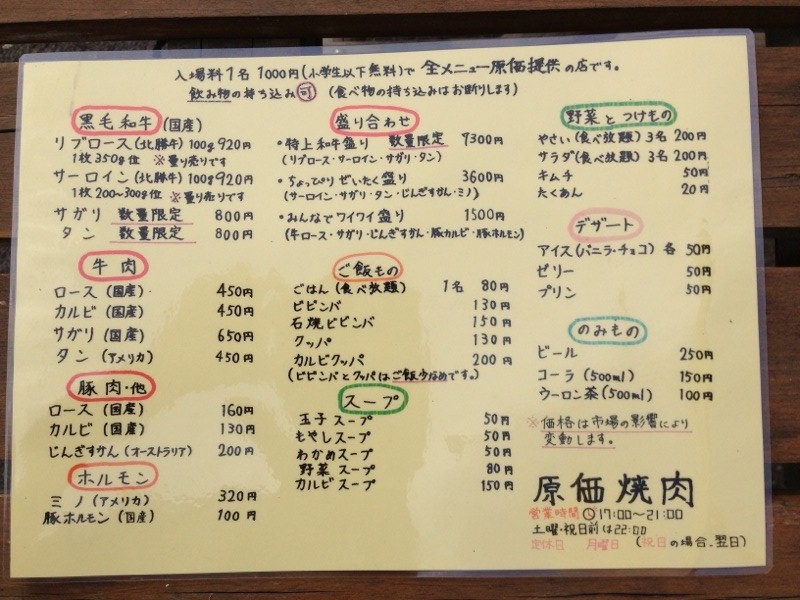 入場料1名1000円(小学生以下無料)で 全メニュー原価提供の店です。
飲み物の持ち込み可 (食べ物の持ち込みはお断りします)
黒毛和牛 (国産)
リブロース(北勝牛) 100g 920円
1枚350g位 ※量り売りです
サーロイン(北勝牛) 100g 920円
1枚200~300g位 ※量り売りです
サガリ 数量限定 800円
タン 数量限定 800円
牛肉
ロース (国産) 450円
カルビ (国産) 450円
サガリ (国産) 650円
タン (アメリカ) 450円
豚肉・他
ロース (国産) 160円
カルビ (国産) 130円
じんぎすかん (オーストラリア) 200円
ホルモン
ミノ (アメリカ) 320円
豚ホルモン (国産) 100円
盛り合わせ
・特上和牛盛り 数量限定 7300円
(リブロース・サーロイン・サガリ・タン)
・ちょっぴりぜいたく盛り 3600円
(サーロイン・サガリ・タン・じんぎすかん・ミノ)
・みんなでワイワイ盛り 1500円
(牛ロース・サガリ・じんぎすかん・豚カルビ・豚ホルモン)
ご飯もの
ごはん (食べ放題) 1名 80円
ビビンバ 130円
石焼ビビンバ 150円
クッパ 130円
カルビクッパ 200円
(ビビンバとクッパはご飯少なめです。)
スープ
玉子スープ 50円
もやしスープ 50円
わかめスープ 50円
野菜スープ 80円
カルビスープ 150円
野菜とつけもの
やさい(食べ放題) 3名 200円
サラダ(食べ放題) 3名 200円
キムチ 50円
たくあん 20円
デザート
アイス(バニラ・チョコ) 各 50円
ゼリー 50円
プリン 50円
のみもの
ビール 250円
コーラ (500ml) 150円
ウーロン茶(500ml) 100円
※価格は市場の影響により
変動します。
原価焼肉
営業時間 17:00~21:00
土曜・祝日前は22:00
定休日 月曜日 (祝日の場合、翌日)